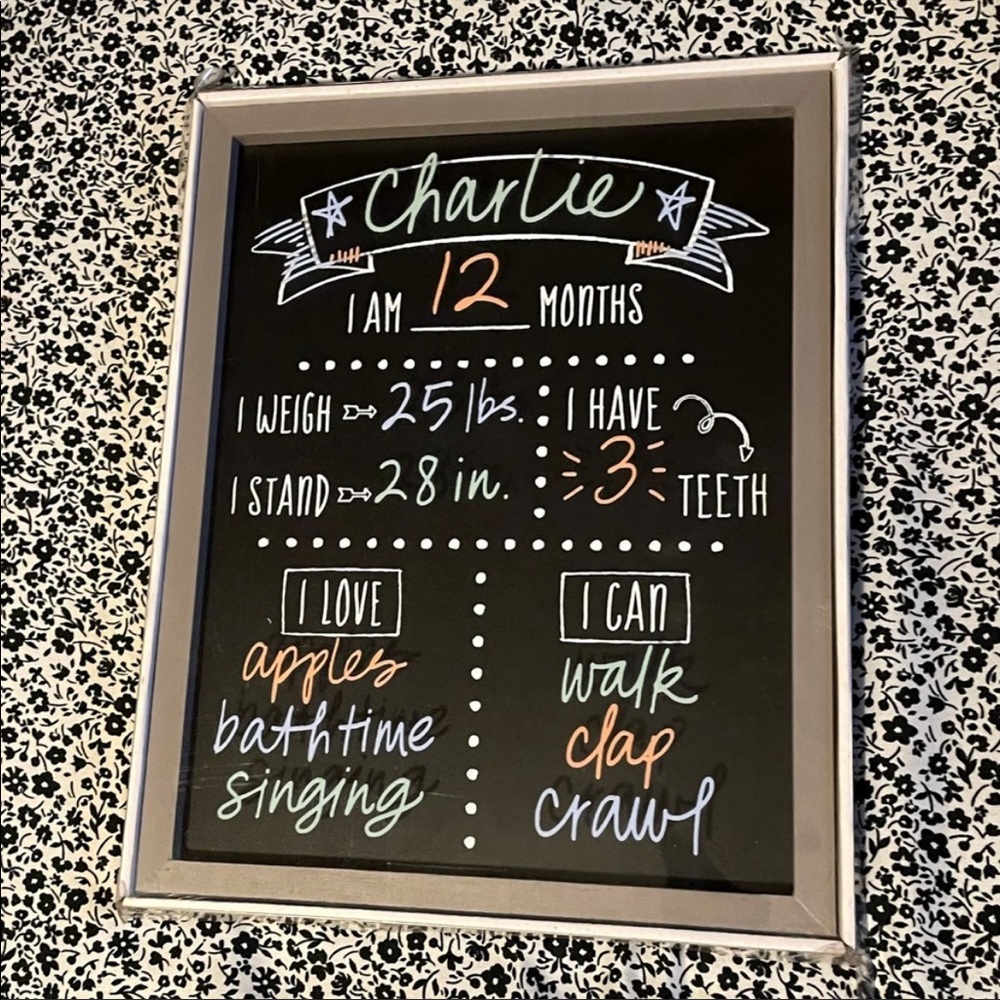 Charlie
I AM 12 MONTHS
I WEIGH 25 lbs.
I STAND 28 in.
I HAVE
3 TEETH
I LOVE
apples
bathtime
singing
I CAN
walk
clap
crawl